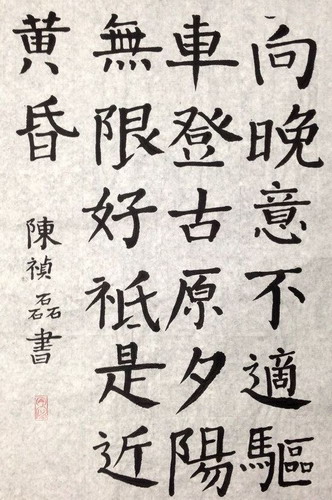 向晚意不適驅
車登古原夕陽
無限好祗是近
黄昏
陳禎磊書